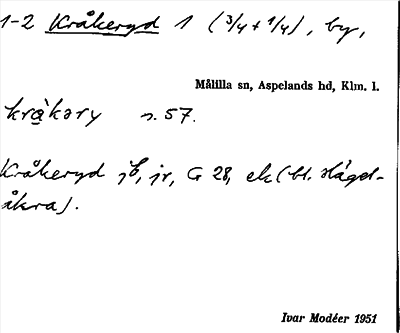 1-2 Kråkeryd 1 (3/4 + 1/4), by,
Målilla sn, Aspelands hd, Klm. l.
kråkəry s. 57.
Kråkeryd jb, jr, G 28, ek (bl. Hägel-
åkra).
Ivar Modéer 1951